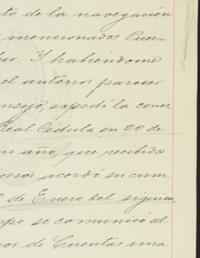 to de la navegación
mencionados Puer-
Y habiéndome
el anterior parecer
onsejo, expedí la corr
Real Cédula en 20 de
año, que recibida
acordó en cum
de Enero del siguien
se comunicó al
de Cuentas una